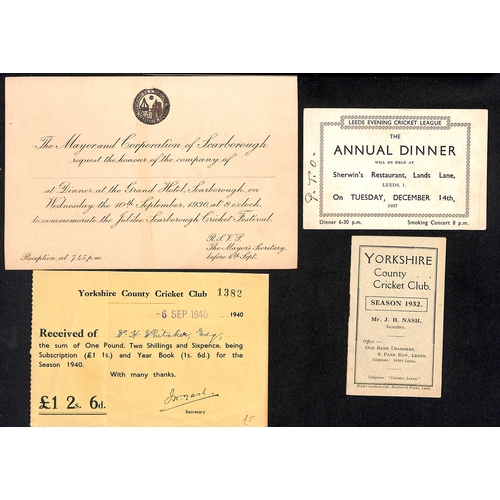 The Mayor and Corporation of Scarborough
request the honour of the company of
at Dinner at the Grand Hotel, Scarborough, on
Wednesday, the 10th September, 1930, at 8 o'clock,
to commemorate the Jubilee Scarborough Cricket Festival.
R.S.V.P.
The Mayor's Secretary,
before 6th Sept.
Reception at 7.45 p.m.
LEEDS EVENING CRICKET LEAGUE
THE
ANNUAL DINNER
WILL BE HELD AT
Sherwin's Restaurant, Lands Lane,
LEEDS, 1.
On TUESDAY, DECEMBER 14th,
1937
Dinner 6-30 p.m. Smoking Concert 8 p.m.
P.T.O.
Yorkshire County Cricket Club 1382
- 6 SEP 1940 1940
Received of Esq.
the sum of One Pound, Two Shillings and Sixpence, being
Subscription (£1 1s.) and Year Book (1s. 6d.) for the
Season 1940.
With many thanks.
£1 2s. 6d.
Secretary
YORKSHIRE
County
Cricket Club.
SEASON 1932.
Mr. J. H. NASH,
Secretary.
Office—
OLD BANK CHAMBERS,
9, PARK ROW, LEEDS.
Telegrams: "CRICKET, LEEDS."